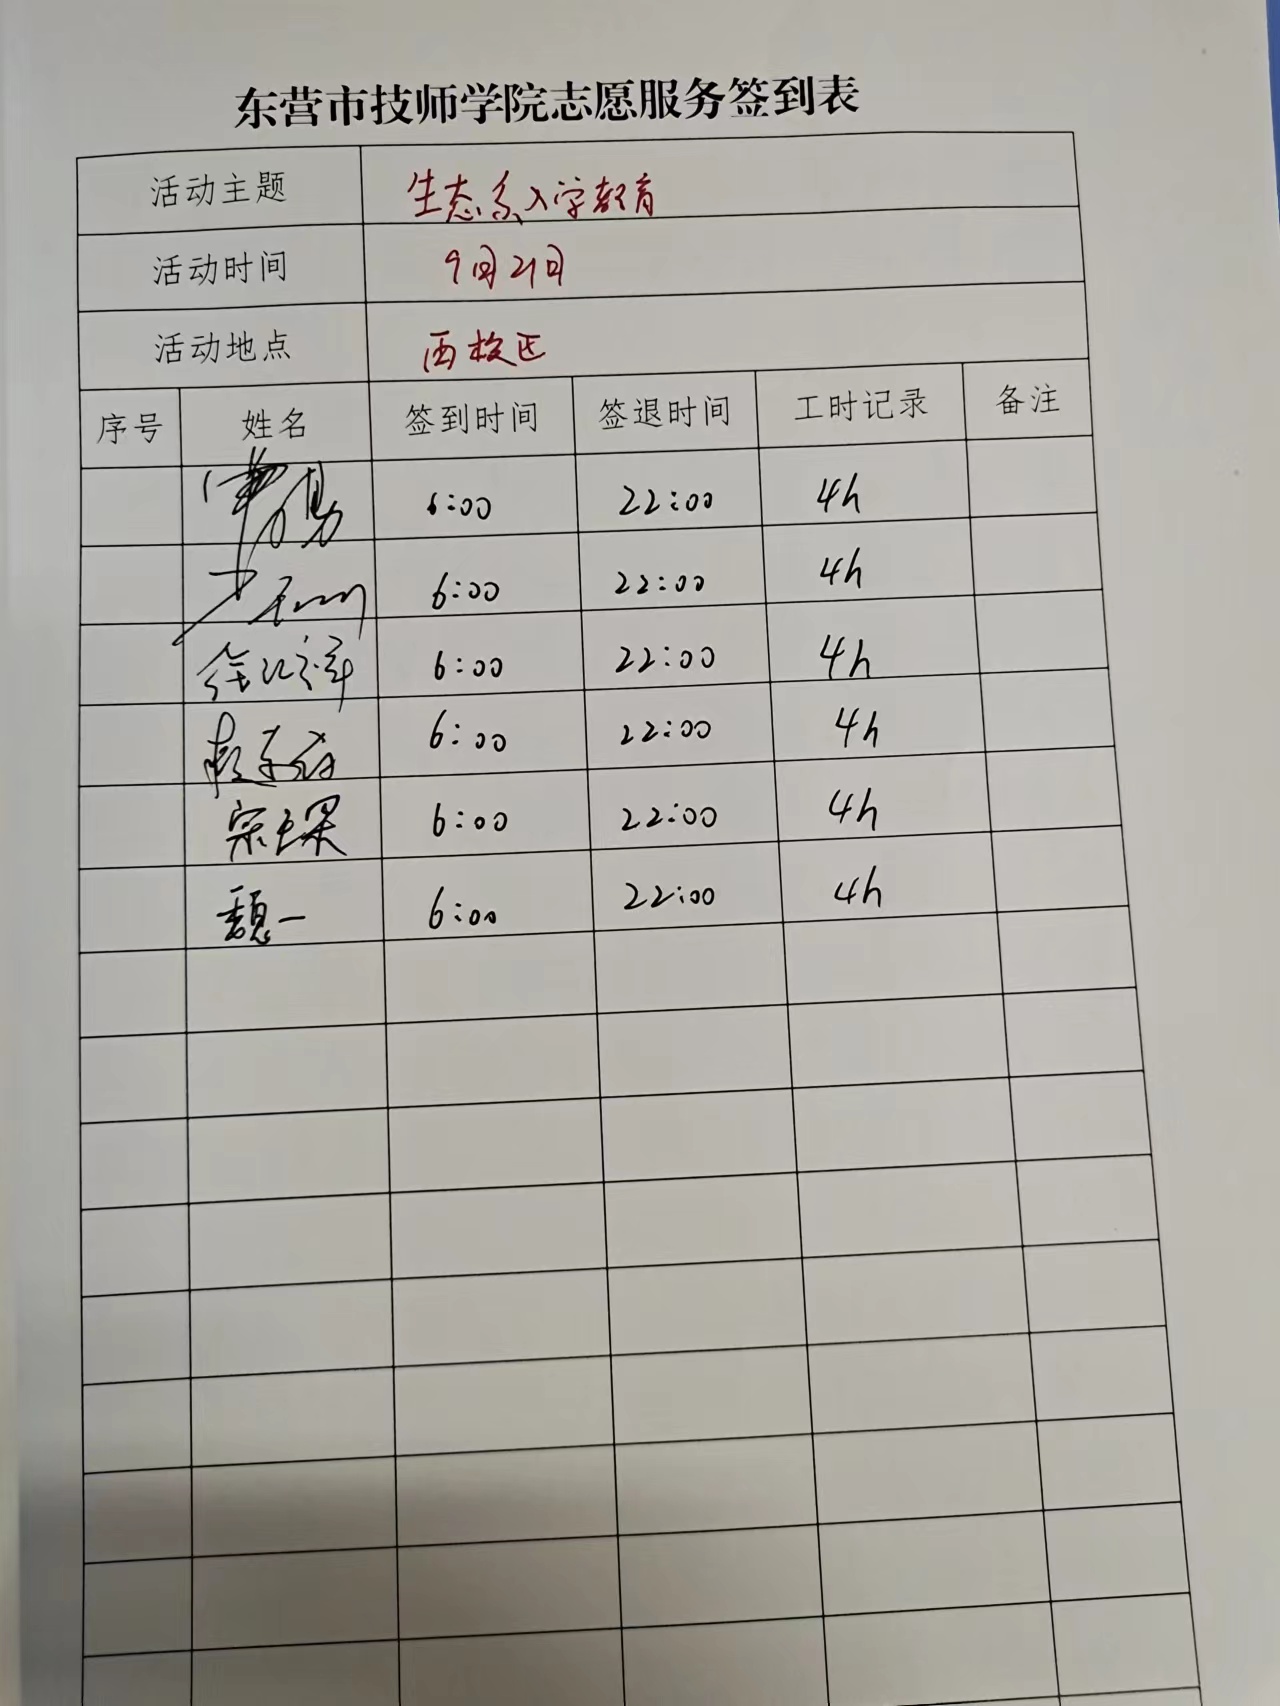 东营市技师学院志愿服务签到表
活动主题 生态系入学教育
活动时间 9月21日
活动地点 西校区
序号 姓名 签到时间 签退时间 工时记录 备注
6:00 22:00 4h
6:00 22:00 4h
6:00 22:00 4h
6:00 22:00 4h
6:00 22:00 4h
魏一 6:00 22:00 4h